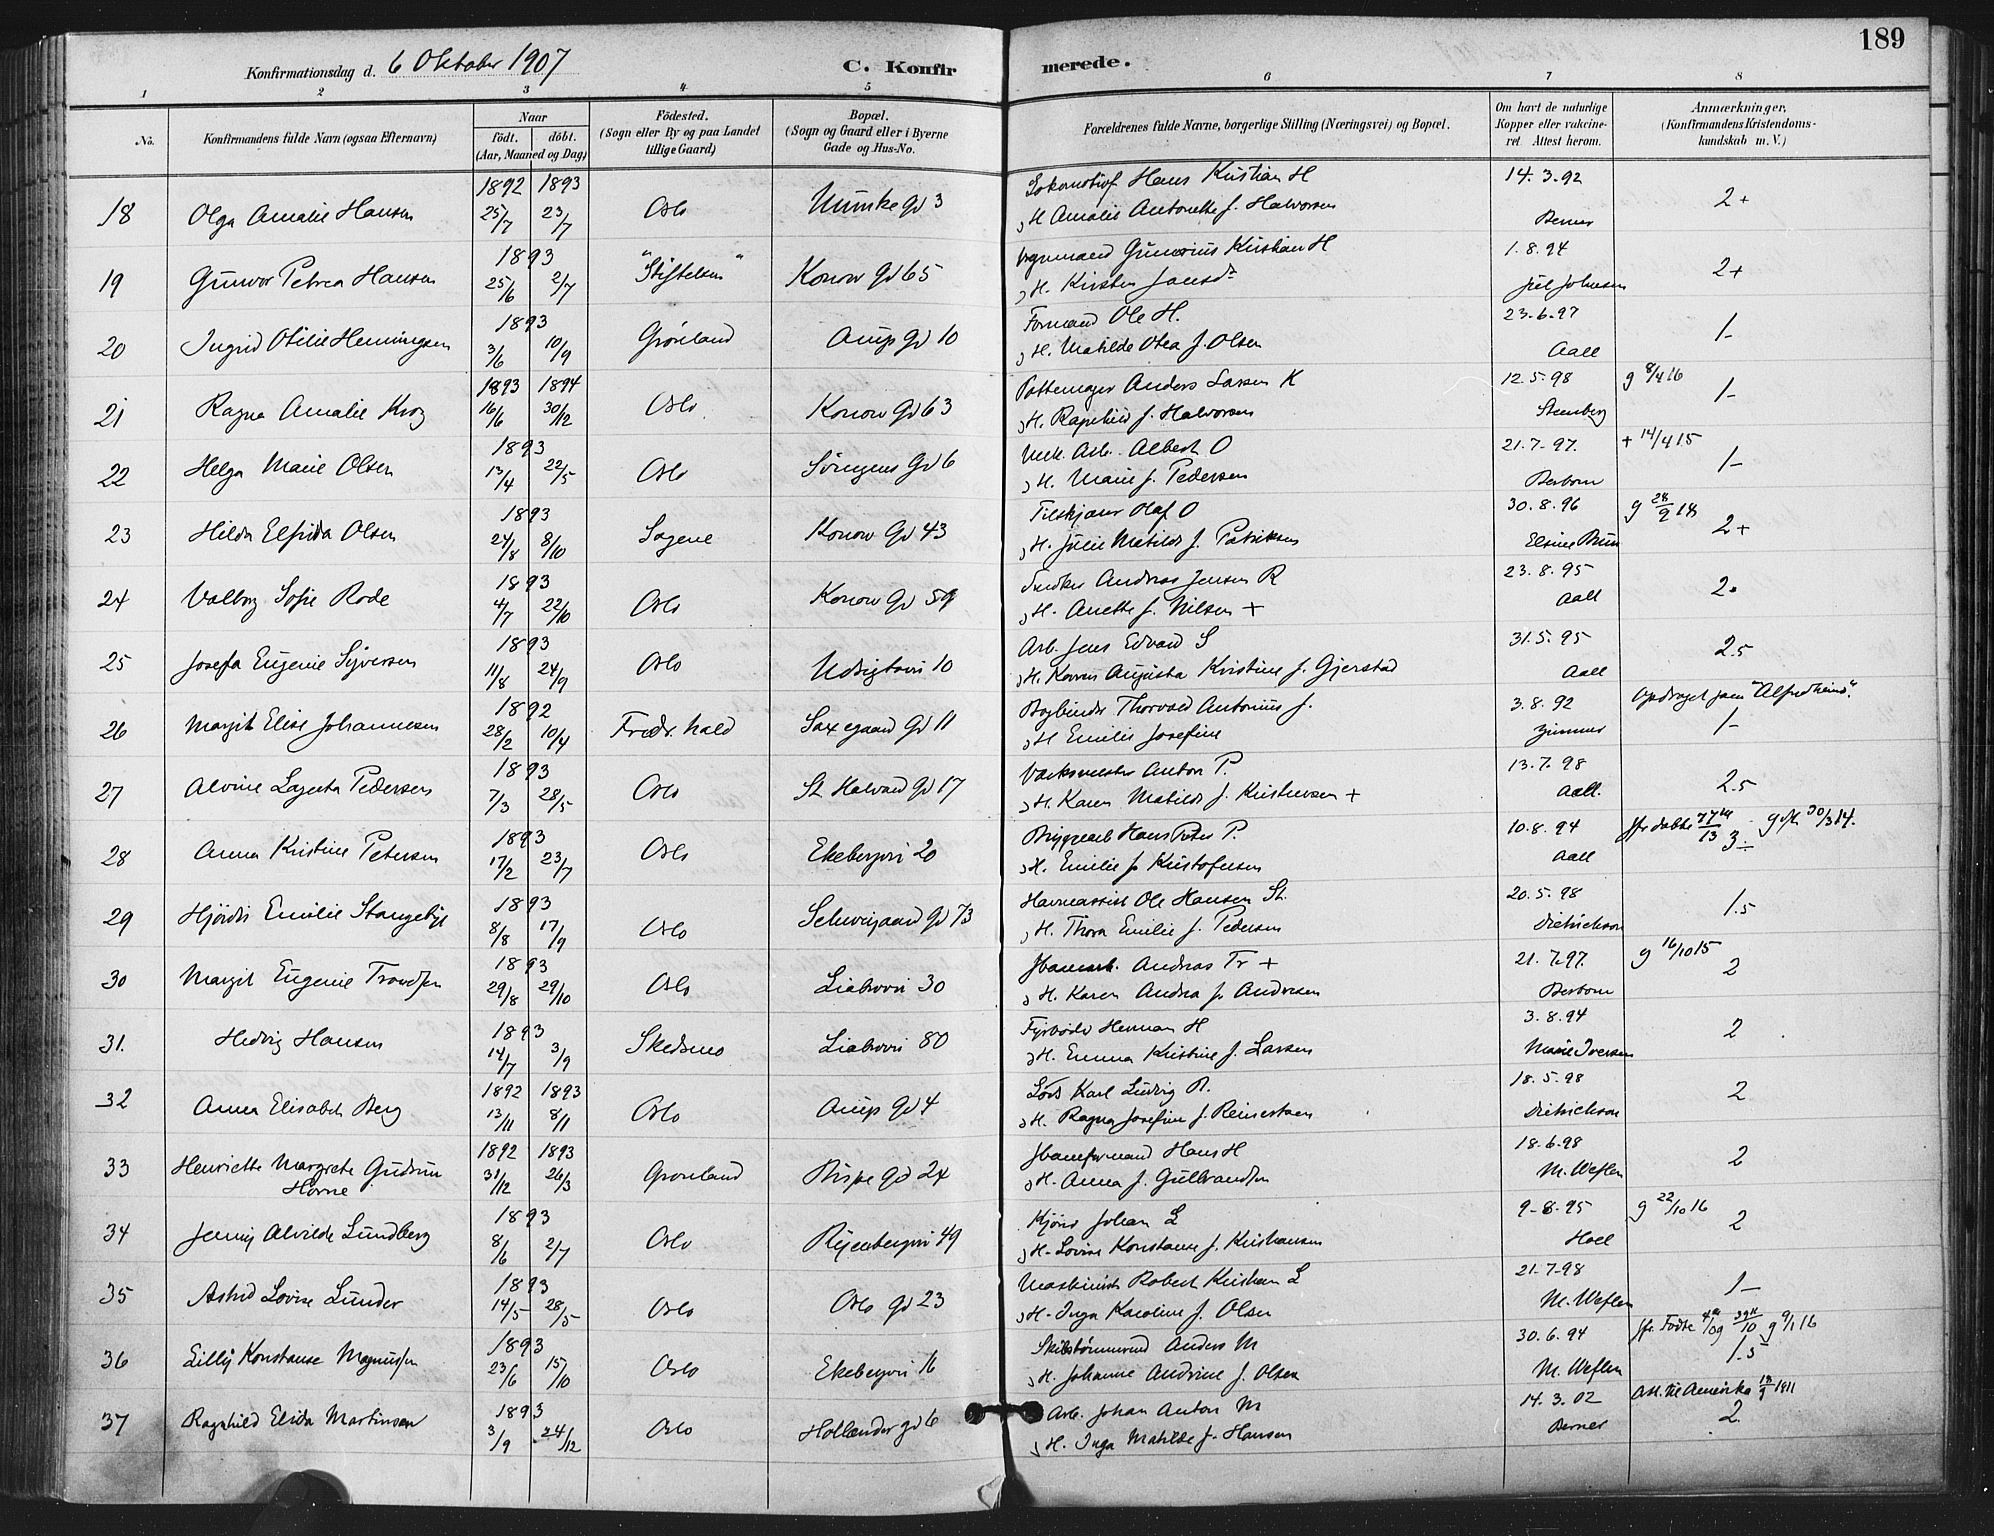 189
Konfirmationsdag d. 6 Oktober 1907
C. Konfirmerede.
1 2 3 4 5 6 7 8
No.
Konfirmandens fulde Navn (ogsaa Efternavn)
Naar
födt. döbt.
(Aar, Maaned og Dag)
Födested.
(Sogn eller By og paa Landet
tillige Gaard)
Bopæl.
(Sogn og Gaard eller i Byerne
Gade og Hus-No.
Forældrenes fulde Navne, borgerlige Stilling (Næringsvei) og Bopæl.
Om havt de naturlige
Kopper eller vakcine-
ret. Attest herom.
Anmærkninger,
(Konfirmandens Kristendoms-
kundskab m. V.)
1892 1893 Hans Kristian H 14.3.92
18 Olga Amalie Hansen 25/7 23/7 Oslo Munke Gd 3 H Amalie Antonette f. Halvorsen Berner 2+
1893 Gunerius Kristian H 1.8.94
19 Gunvor Petrea Hansen 25/6 2/7 "Stiftelsen" Konow Gd 65 H. Kirsten Jansdr Juel Johnsen 2+
1893 Formand Ole H. 23.6.97
20 Ingrid Otilie Henningsen 3/6 10/9 Grönland Arups Gd 10 H. Matilde Olea f. Olsen Aall 1-
1893 1894 Pottemager Anders Larsen K 12.5.98 g 8/4 16
21 Ragna Amalie Krog 16/6 30/12 Oslo Konow Gd 63 H. Ragnhild f. Halvorsen Steenberg 1-
1893 Mek. Arb. Albert O 21.7.97. + 14/4 15
22 Helga Marie Olsen 13/4 22/5 Oslo Sörenga Gd 6 H. Marie f. Pedersen Berbom 1-
1893 Filskjærer Olaf O 30.8.96 g 28/9 18
23 Hilda Elfrida Olsen 24/8 8/10 Sagene Konow Gd 43 H. Julie Matilde f. Patriksen Elsine Bruu 2+
1893 Snedker Andreas Jensen R 23.8.95
24 Valborg Sofie Rode 4/7 22/10 Oslo Konow Gd 59 H. Anette f. Nilsen + Aall 2.
1893 Arb. Jens Edvard S 31.5.95
25 Josefa Eugenie Syversen 11/8 24/9 Oslo Udsigtsvei 10 H. Karen Augusta Kristine f. Gjerstad Aall 2.5
1892 Bogbinder Thorvald Antonius J. 3.8.92 Opdraget paa "Alfredheim".
26 Margit Elise Johannesen 28/2 10/4 Fredr.hald Saxegaard Gd 11 H Emilie Josefine Zimmer 1-
1893 Værksmester Anton P. 13.7.98
27 Alvine Lagerta Pedersen 7/3 28/5 Oslo St Halvard Gd 17 H. Karen Matilde f. Kristensen + Aall. 2.5
1893 Bryggearb Hans Peter P. 10.8.94 jfr döbte 77/13 gift 30/3 14.
28 Anna Kristine Petersen 17/2 23/7 Oslo Ekebergvei 20 H. Emilie f. Kristofersen Aall 3÷
1893 Havneassist Ole Hansen St. 20.5.98
29 Hjördis Emilie Stangebye 8/8 17/9 Oslo Schweigaard Gd 73 H. Thora Emilie f. Pedersen Dietrichson 1.5
1893 Andreas Tr + 21.7.97. g 16/10 15
30 Margit Eugenie Trondsen 29/8 29/10 Oslo Liabrovei 30 H. Karen Andrea f. Andresen Berbom 2
1893 Fyrböder Herman H 3.8.94
31. Hedvig Hansen 14/7 3/9 Skedsmo Liabrovei 80 H. Emma Kristine f. Larsen Marie Iversen 2
1892 1893 Lods Karl Ludvig B. 18.5.98
32 Anna Elisabeth Berg 13/11 8/1 Oslo Arups Gd 4 H. Ragna Josefine f. Reinertsen Dietrichson 2
1892 1893 Baneformand Hans H 18.6.98
33 Henriette Margrete Gudrun 31/12 26/3 Grönland Bispe Gd 24 H. Anna f. Gulbrandsen M. Weflen 2
Horne
1893 Kjörer Johan L 9.8.95 g 22/10 16
34 Jenny Alvilde Lundberg 8/6 2/7 Oslo Ryenbergvei 49 H. Lovise Konstanse f. Kristiansen Hoel 2
1893 Maskinist Robert Kristian L 21.7.98
35 Astrid Lovise Lunder 14/5 28/5 Oslo Oslo gd 23 H. Inga Karoline f. Olsen M. Weflen 1-
1893 Skibstömmermd Anders M 30.6.94 jfr. Födte 4/09 39/10 g 9/1 16
36 Lilly Konstanse Magnussen 23/6 15/10 Oslo Ekebergvei 16 H. Johanne Andrine f. Olsen M. Weflen 1.5
1893 Arb. Johan Anton M 14.3.02 Att. til Amerika 18/9 1911
37 Ragnhild Elida Martinsen 3/9 24/12 Oslo Hollænder gd 6 H. Inga Matilde f. Hansen Berner 2.